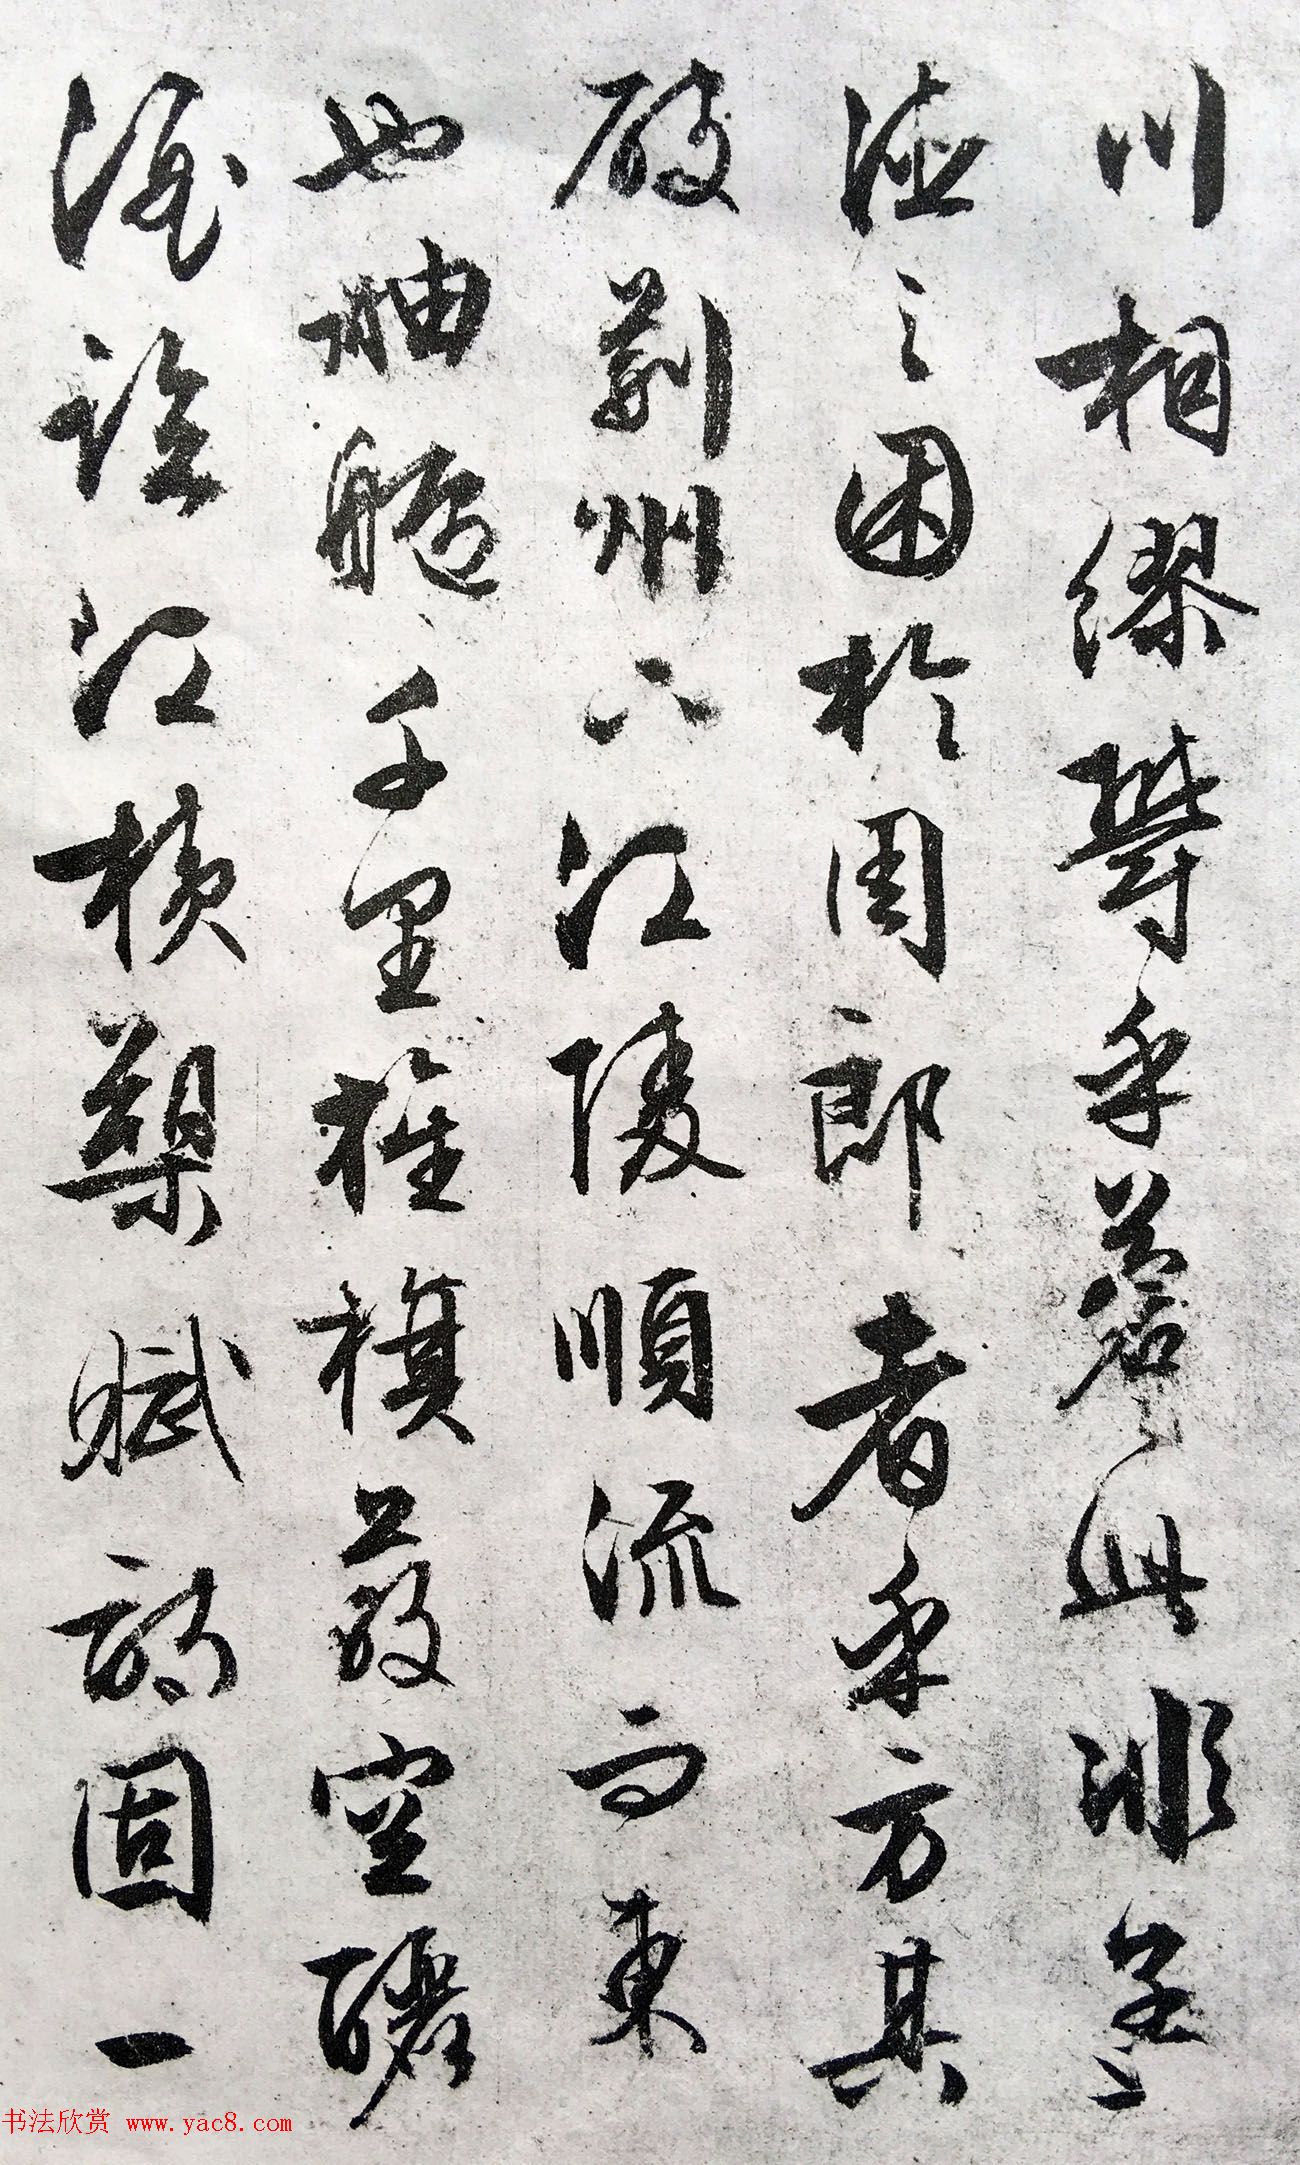 川相繆鬱乎蒼々此非孟
德之困於周郎者乎方其
破荊州下江陵順流而東
也舳艫千里旌旗蔽空釃
酒臨江橫槊賦詩固一
书法欣赏 www.yac8.com